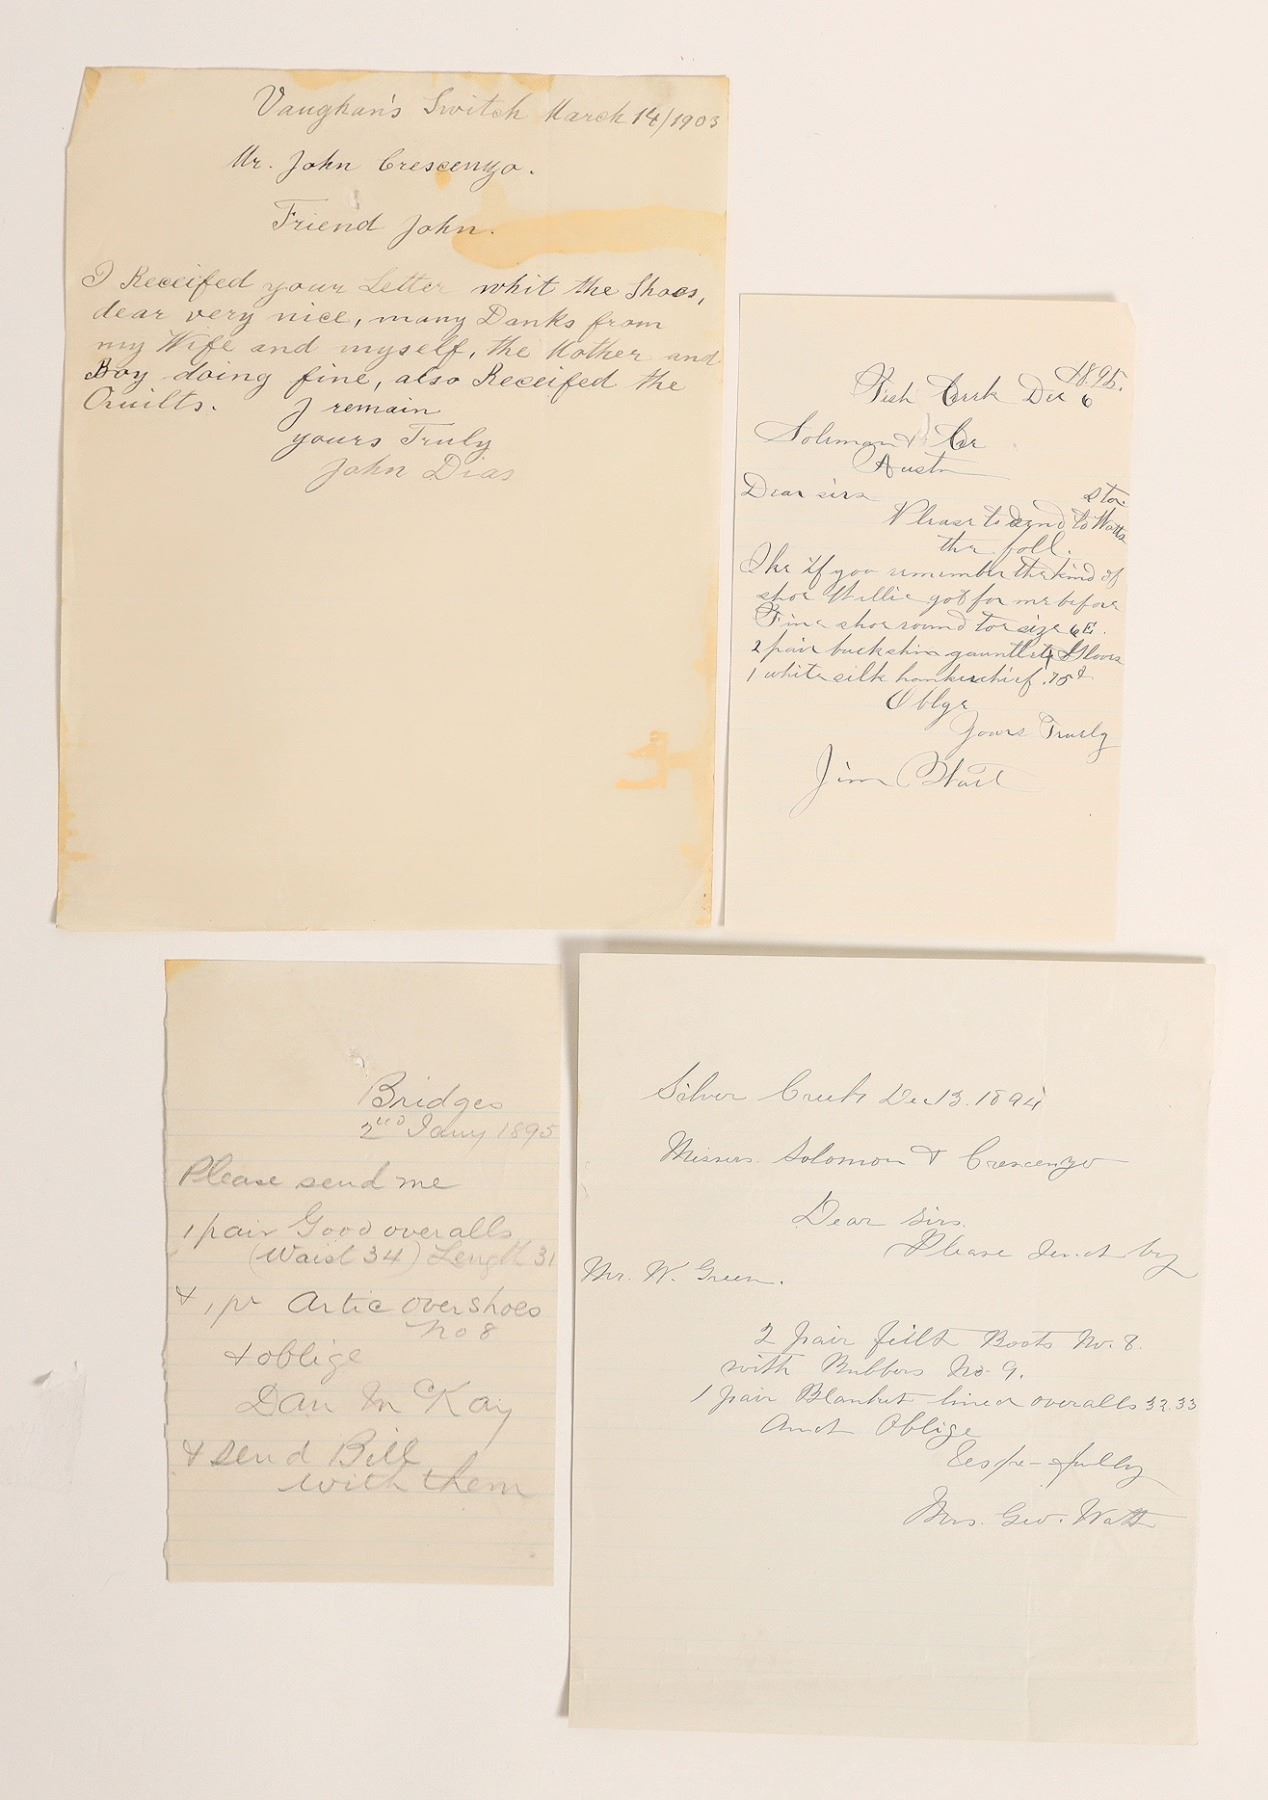 Vaughan's Switch March 14/1903
Mr. John Crescenzo.
Friend John.
I Receifed your Letter whit the Shoes,
dear very nice, many Danks from
my Wife and myself, the Mother and
Boy doing fine, also Receifed the
Quilts. I remain
yours Truly
John Dias
1895.
Fish Creek Dec 6
Solomon & Cr
Austin
Dear sirs
Please to send to Watts Stor.
the foll.
Ike if you remember the kind of
shoe Willie got for me before
Fine shoe round toe size 6 E.
2 pair buckskin gauntlet Gloves
1 white silk hankerchief .75¢
Oblge
Yours Truely
Jim
Bridges
2nd Jany 1895
Please send me
1 pair Good overalls
(Waist 34) Length 31
& 1 pr Artic overshoes
No 8
& oblige
Dan McKay
& send Bill
with them
Silver Creek Dec 13. 1894
Messrs. Solomon & Crescenzo
Dear Sirs.
Please send by
Mr. W. Green.
2 pair felt Boots No. 8.
with Rubbers No. 9.
1 pair Blanket lined overalls 32.33
And Oblige
Respe-tfully
Mrs. Geo. Watt